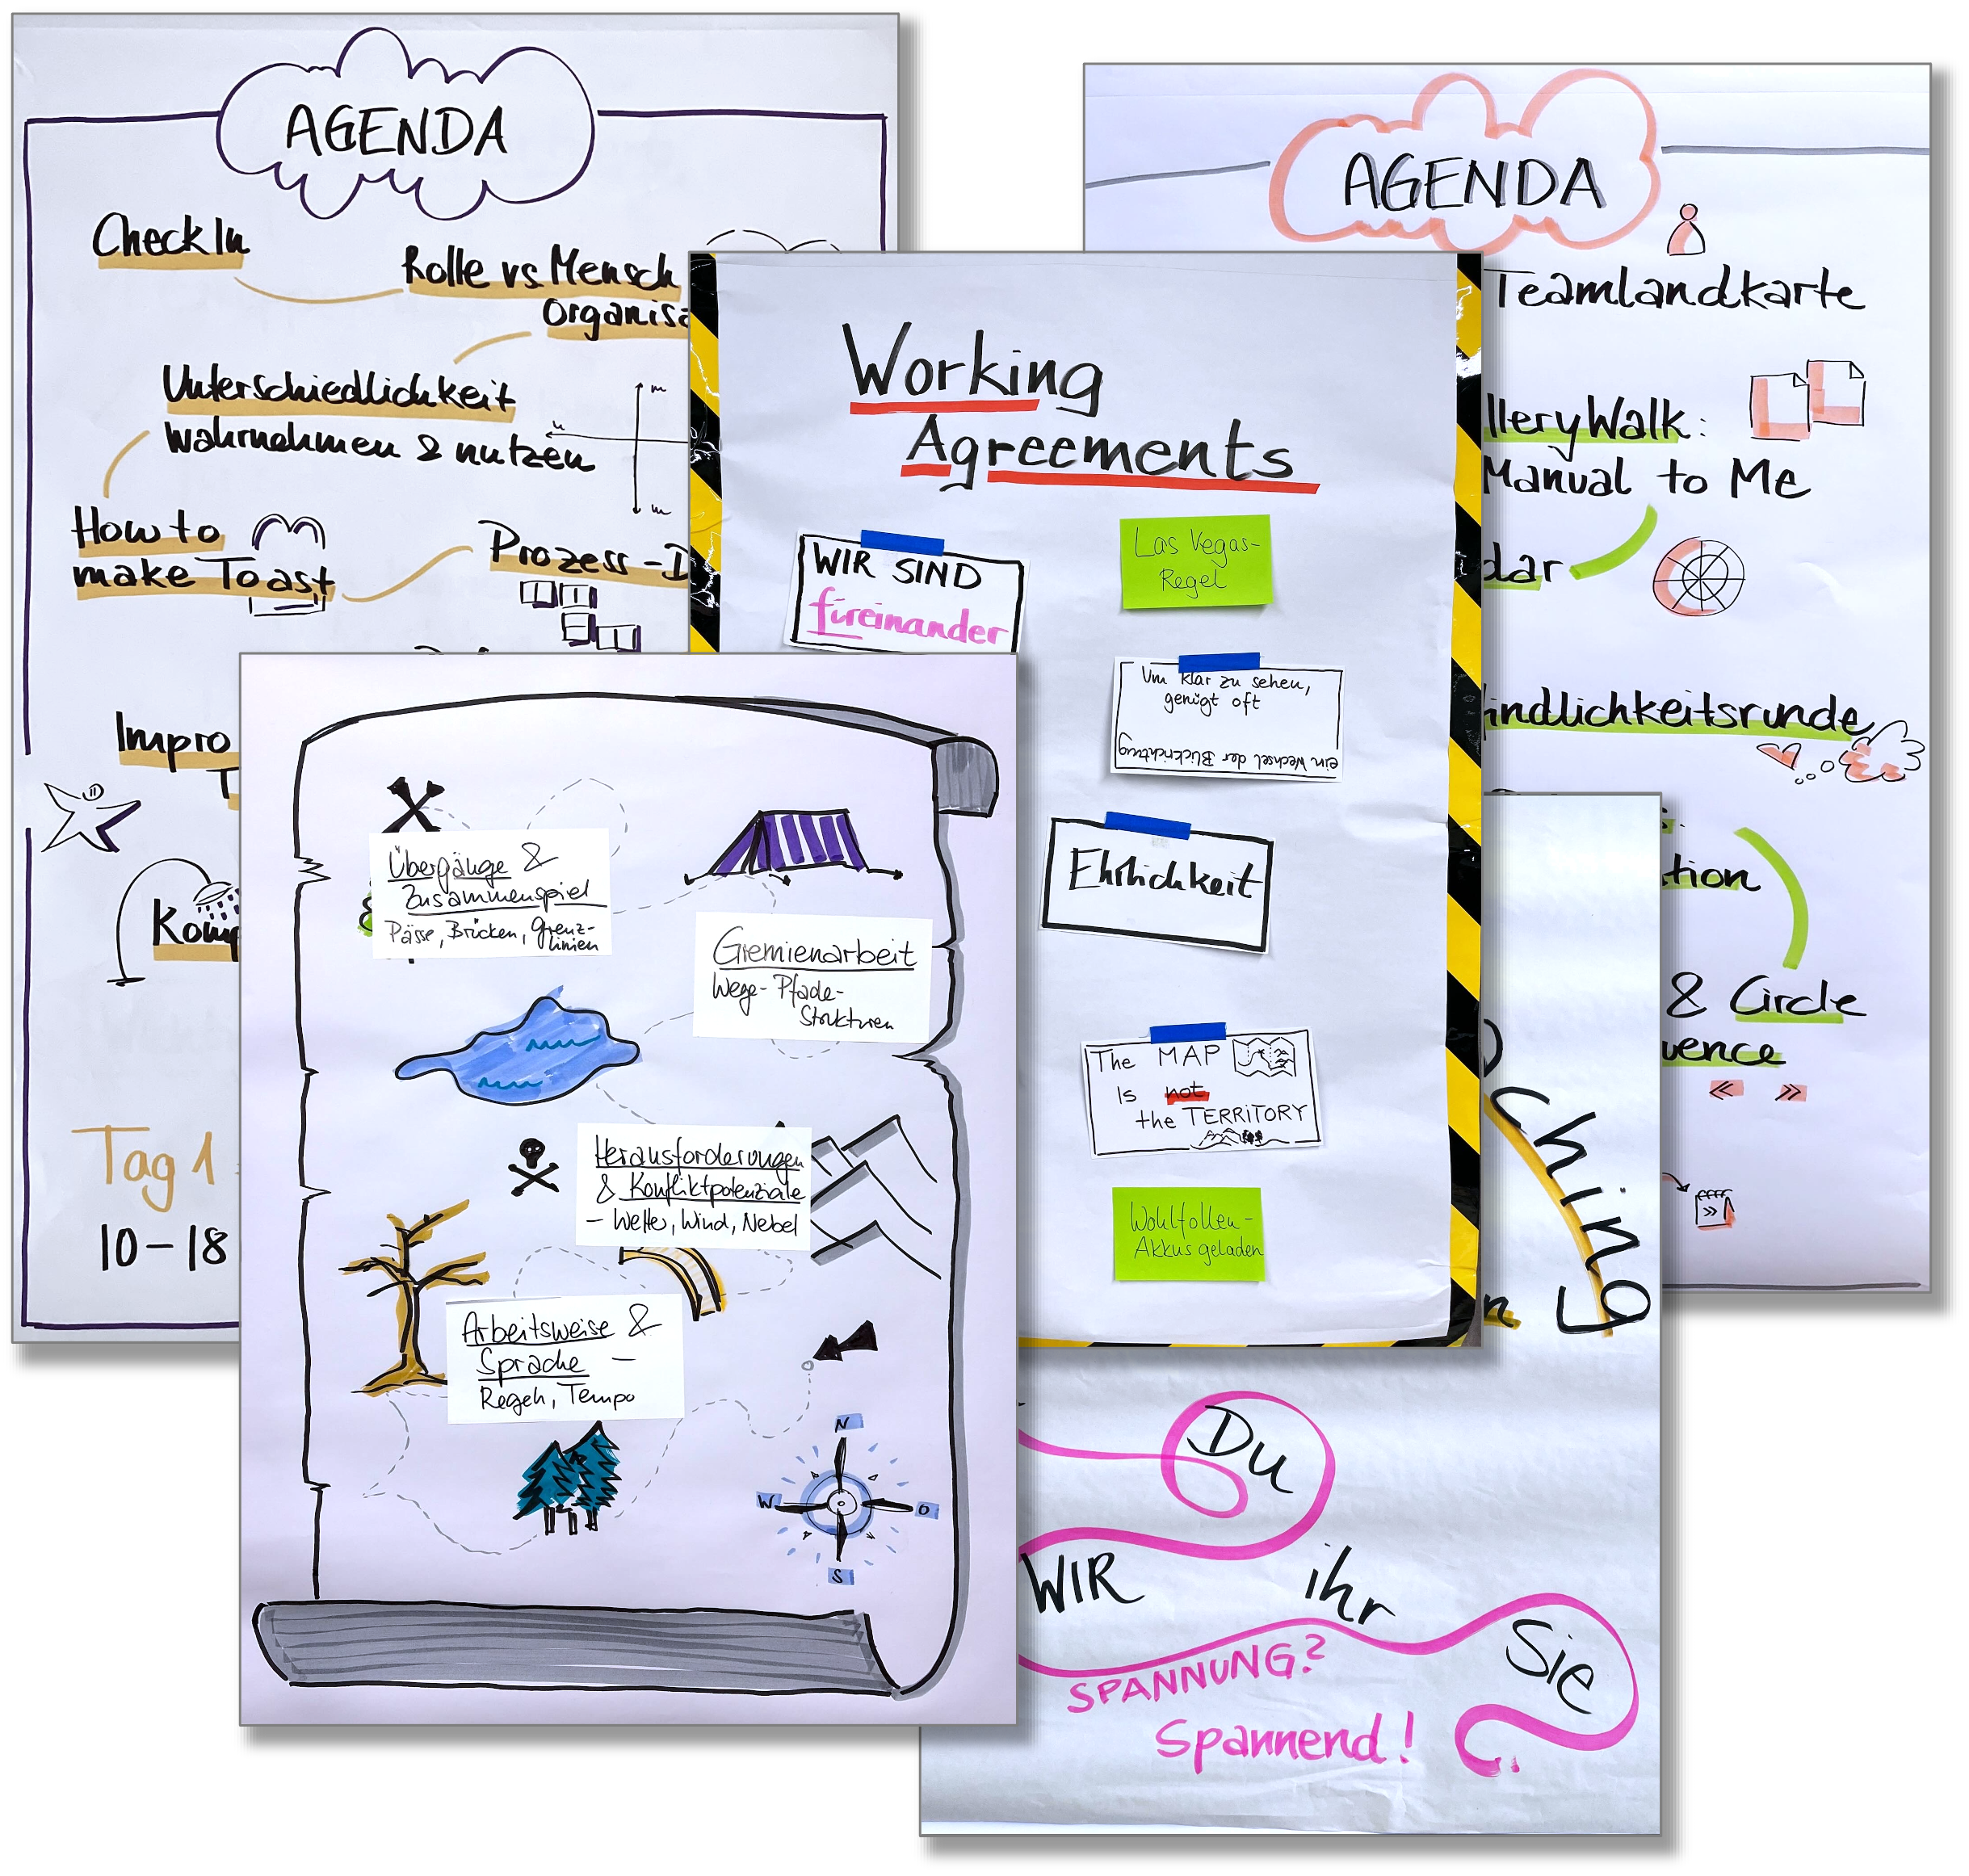 AGENDA
CheckIn
Rolle vs Mensch
Organisa
Unterschiedlichkeit
wahrnehmen & nutzen
How to
make Toast
Prozess-D
Impro
Komp
Tag 1
10-18
Working
Agreements
WIR SIND
füreinander
Las Vegas-
Regel
Um klar zu sehen,
genügt oft
ein Wechsel der Blickrichtung
Ehrlichkeit
The MAP
Is not
the TERRITORY
Wohlfollen-
Akkus geladen
AGENDA
Teamlandkarte
lleryWalk:
Manual to Me
dar
indlichkeitsrunde
tion
& Circle
uence
Übergänge &
Zusammenspiel
Pässe, Brücken, Grenz-
linien
Gremienarbeit
Wege- Pfade-
Strukturen
Herausforderungen
& Konfliktpotenziale
- Wetter, Wind, Nebel
Arbeitsweise &
Sprache -
Regeln, Tempo
N
W
O
S
ching
n
Du
WIR
ihr
Sie
SPANNUNG?
Spannend!